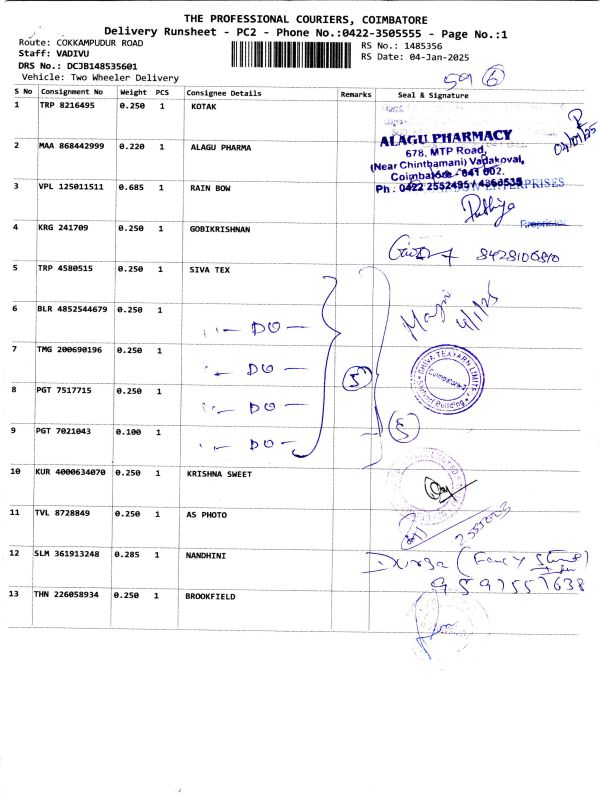 THE PROFESSIONAL COURIERS, COIMBATORE
Delivery Runsheet - PC2 - Phone No.:0422-3505555 - Page No.:1
Route: COKKAMPUDUR ROAD
RS No.: 1485356
Staff: VADIVU
RS Date: 04-Jan-2025
DRS No.: DCJB148535601
Vehicle: Two Wheeler Delivery
59 6
S No Consignment No Weight PCS Consignee Details Remarks Seal & Signature
1 TRP 8216495 0.250 1 KOTAK
2 MAA 868442999 0.220 1 ALAGU PHARMA
ALAGU PHARMACY
678, MTP Road,
(Near Chinthamani) Vadakoval,
Coimbatore - 641 002.
Ph : 0422 2552495 / 4368535
04/01/25
3 VPL 125011511 0.685 1 RAIN BOW
ENTERPRISES
Proprietor
4 KRG 241709 0.250 1 GOBIKRISHNAN
8428106810
5 TRP 4580515 0.250 1 SIVA TEX
6 BLR 4852544679 0.250 1
"— DO —
4/1/25
7 TMG 200690196 0.250 1
"— DO —
5
SHIVA TEXYARN LIMITED
Coimbatore
8 PGT 7517715 0.250 1
"— DO —
9 PGT 7021043 0.100 1
"— DO —
5
10 KUR 4000634070 0.250 1 KRISHNA SWEET
11 TVL 8728849 0.250 1 AS PHOTO
12 SLM 361913248 0.285 1 NANDHINI
Durga (Fancy Store)
9597557638
13 THN 226058934 0.250 1 BROOKFIELD